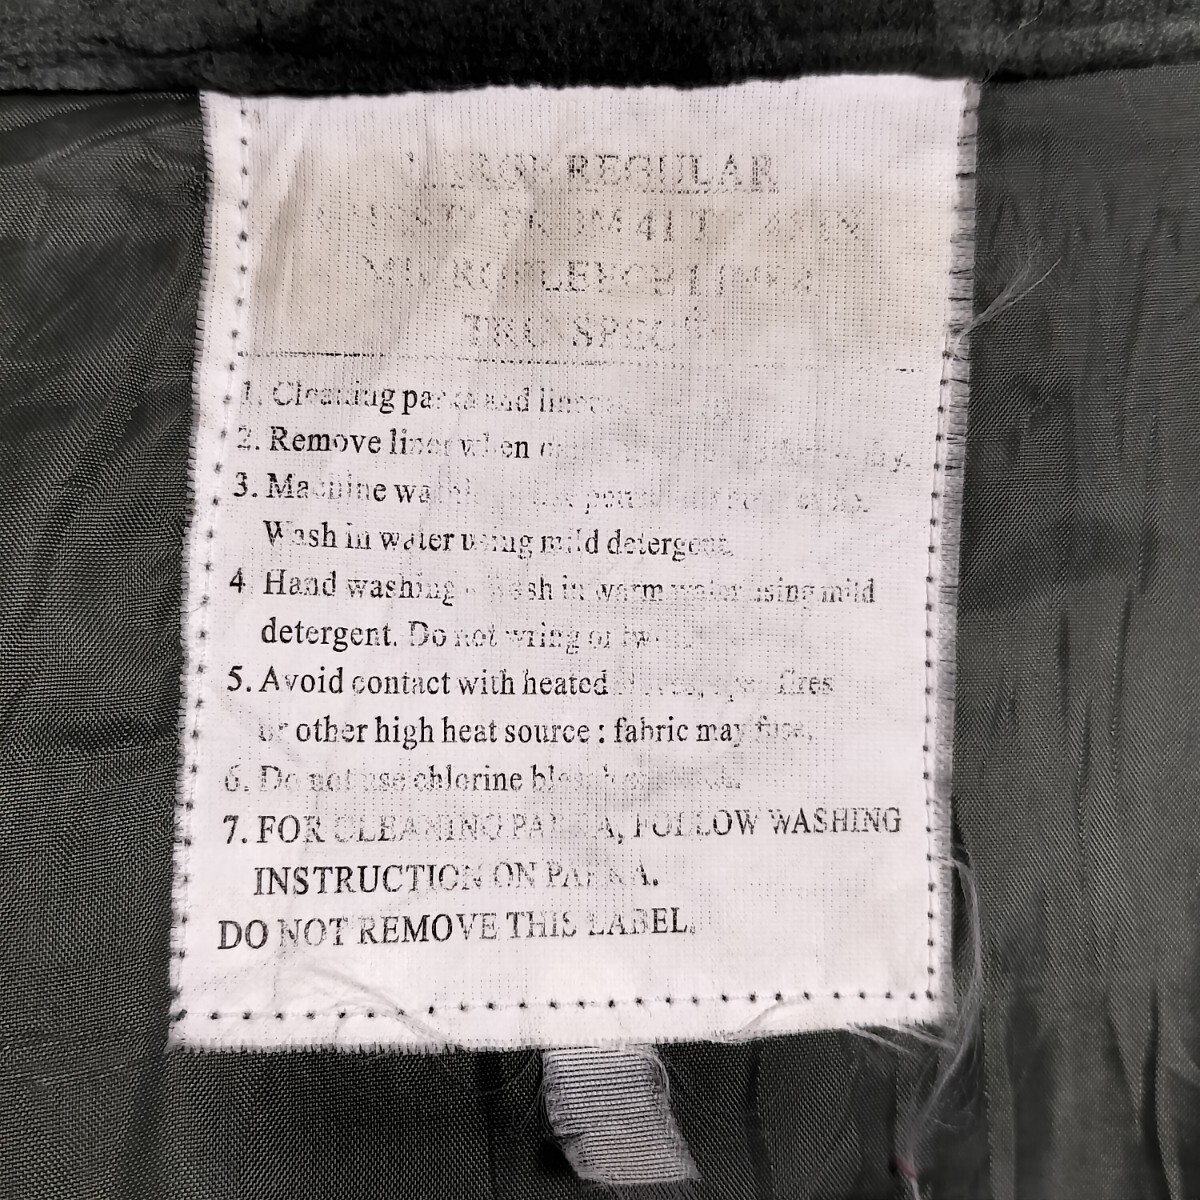 LARGE REGULAR
CHEST: FROM 41 TO 45 IN
MICRO FLEECE LINED
TRU-SPEC®
1. Cleaning parka and liner
2. Remove liner when
3. Machine wash
Wash in water using mild detergent.
4. Hand washing - Wash in warm water using mild
detergent. Do not wring or twist.
5. Avoid contact with heated stoves, open fires
or other high heat source : fabric may fuse.
6. Do not use chlorine bleach
7. FOR CLEANING PARKA, FOLLOW WASHING
INSTRUCTION ON PARKA.
DO NOT REMOVE THIS LABEL.